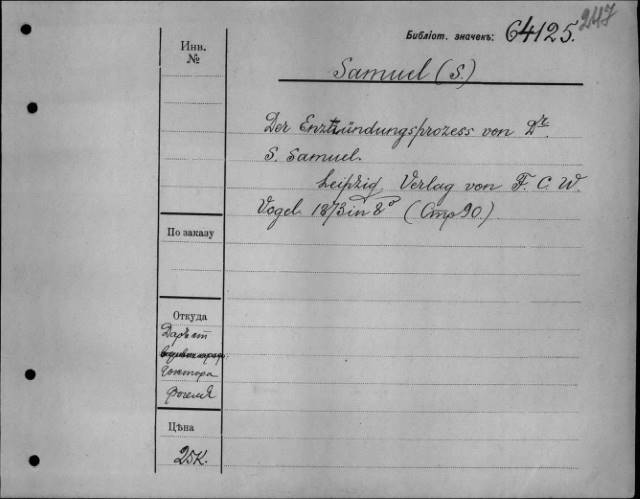 247
Библіот. значекъ: 64125.
Инв.
№
Samuel (S.)
Der Enztzündungsprozess von Dr.
S. Samuel.
Leipzig Verlag von F. C. W.
Vogel. 1873 in 8° (Стр 90.)
По заказу
Откуда
Даръ отъ
доктора
Фогеля
Цѣна
25к.